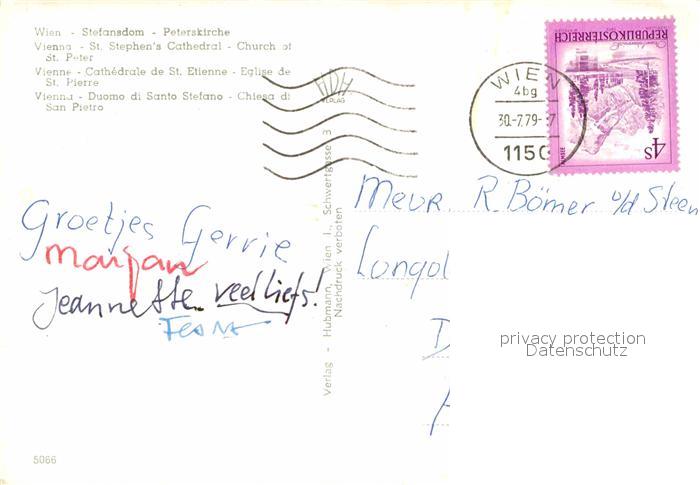 Wien - Stefansdom - Peterskirche
Vienna - St. Stephen's Cathedral - Church of
St. Peter
Vienne - Cathédrale de St. Etienne - Eglise de
St. Pierre
Vienna - Duomo di Santo Stefano - Chiesa di
San Pietro
HDH
VERLAG
WIEN
4bg
30.-7.79-
1150
REPUBLIK ÖSTERREICH
4S
Groetjes Gerrie
Marjan
Jeannette veel liefs!
Mevr. R. Bömer v/d Steen
Verlag - Hubmann, Wien I., Schwertgasse 3
Nachdruck verboten
privacy protection
Datenschutz
5066